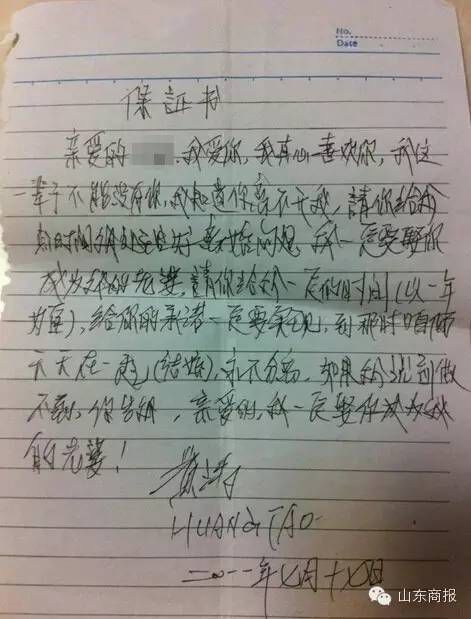 No.
Date
保証书
亲爱的 我爱你,我真心喜欢你,我这
一辈子不能没有你,我知道你离不开我,請你给我
时间 处理好 婚姻问题,我一定要娶你
成为我的老婆,請你给我一定的时间(以一年
为宜),给你的承诺一定要实现,到那时咱俩
天天在一起(结婚),永不分离,如果我说到做
不到,你告我,亲爱的,我一定娶你成为我
的老婆!
黄涛
HUANG TAO
二〇一一年七月十七日
山东商报